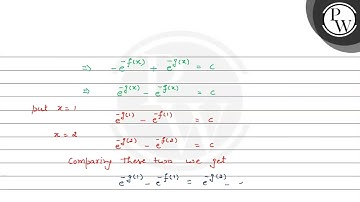 PW
⇒ -e^{-f(x)} + e^{-g(x)} = c
⇒ e^{-g(x)} - e^{-f(x)} = c
put x = 1 e^{-g(1)} - e^{-f(1)} = c
x = 2 e^{-g(2)} - e^{-f(2)} = c
Comparing these two we get
e^{-g(1)} - e^{-f(1)} = e^{-g(2)} - -